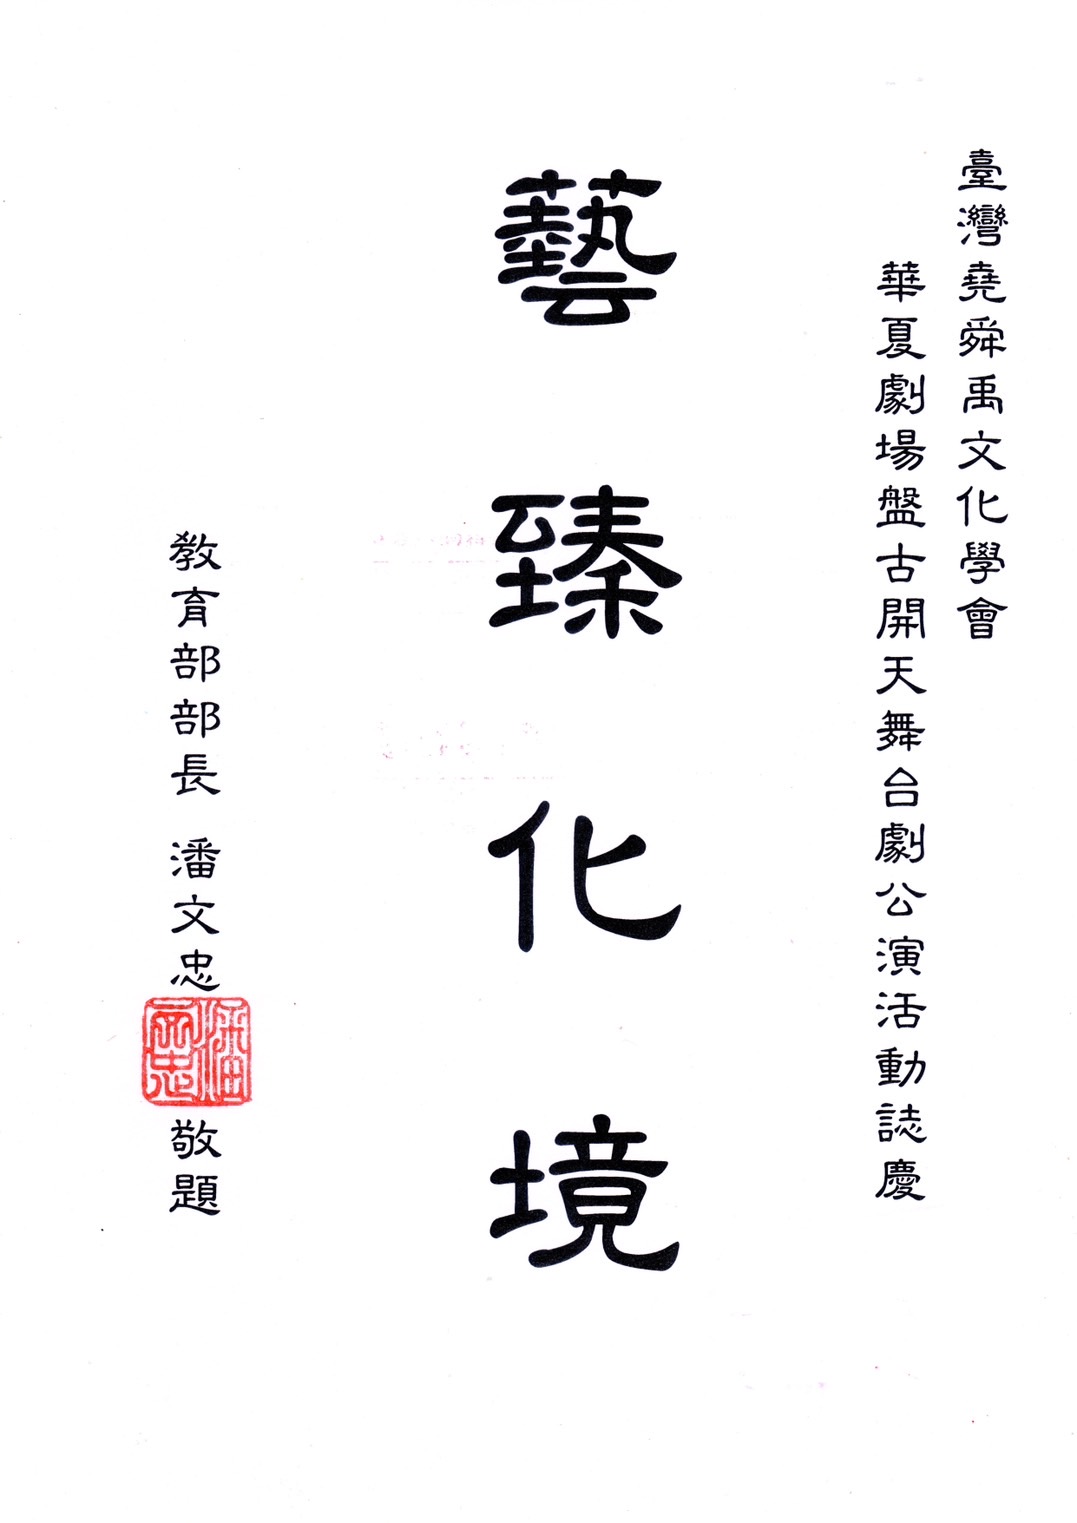 臺灣堯舜禹文化學會
華夏劇場盤古開天舞台劇公演活動誌慶
藝臻化境
教育部部長 潘文忠 敬題
潘文忠